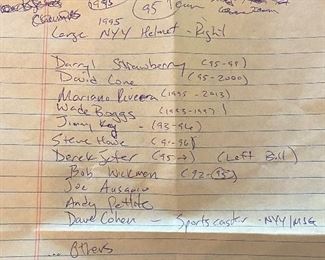 1995 95 Team
1995
Large NYY Helmet - Right
Darryl Strawberry (95-99)
David Cone (95-2000)
Mariano Rivera (1995-2013)
Wade Boggs (1993-1997)
Jimmy Key - (93-96)
Steve Howe (91-96)
Derek Jeter (95→) (Left Bill)
Bob Wickman (92-95)
Joe Ausanio
Andy Pettite
Dave Cohen - Sportscaster - NYY/MSG
... Others